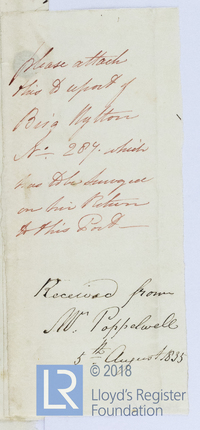 Please attach
this to report of
Brig Hylton
No. 287. which
has
on her Return
to this Port
Received from
Mr. Poppelwell
5th August 1835
LR
© 2018
Lloyd's Register
Foundation